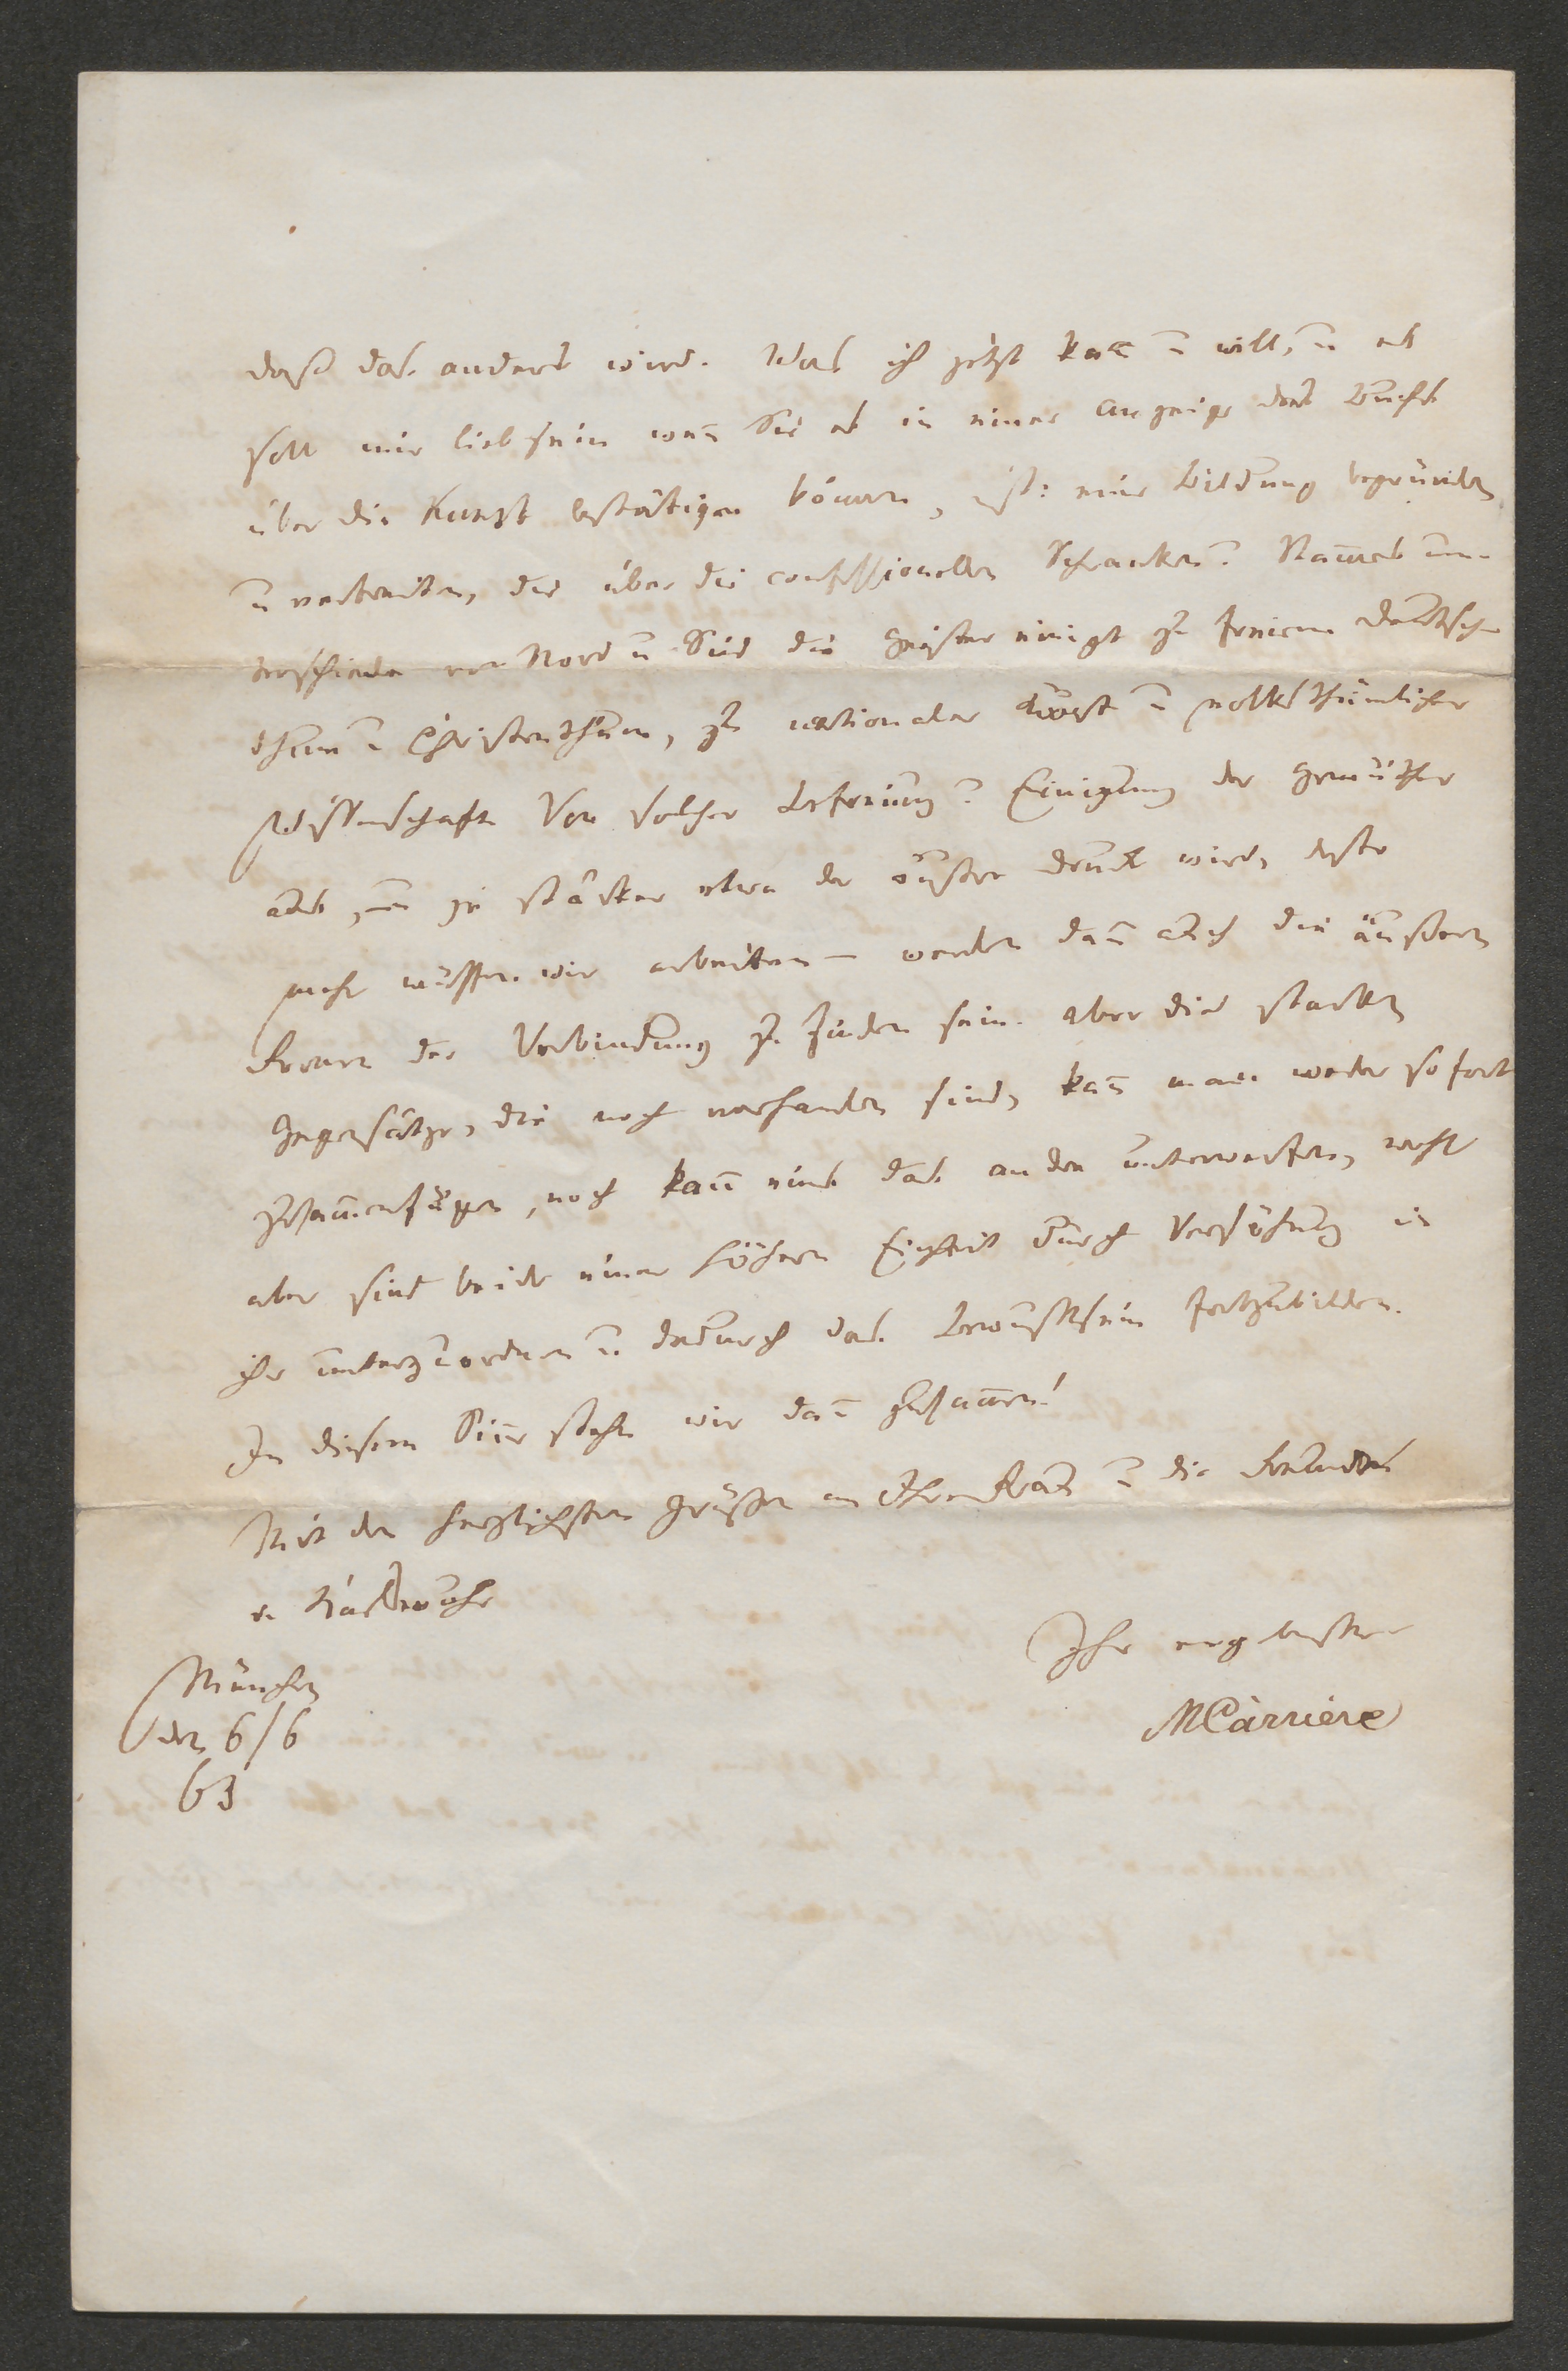 daß das anders wird. Was ich jetzt kann u will, u es
soll mir lieb sein wenn Sie es in einer Anzeige des Buchs
über die Kunst bestätigen können, ist: eine Bildung begründen
u verbreiten, die über die confessionellen Schranken u Stammesun-
terschiede von Nord u Süd die Geister einigt zu freiem Deutsch-
thum u Christenthum, zu nationaler Kunst u volksthümlicher
Wissenschaft. Von solcher Befreiung u Einigung der Gemüther
aus, u je stärker etwa der äußere Druck wird, desto
mehr müssen wir arbeiten – werden dann auch die äußern
Formen der Verbindung zu finden sein. Aber die starken
Gegensätze, die noch vorhanden sind, kann man weder sofort
zusammenfügen, noch kann eins das andere unterwerfen, wohl
aber sind beide einer höhern Einheit durch Versöhnung in
ihr unterzuordnen u. dadurch das Bewußtsein fortzubilden.
In diesem Sinne stehn wir dann zusammen!
Mit den herzlichsten Grüßen an Ihre Frau u die Freunde
Ihr ergebenster
MCarriere
München
den 6/6
63